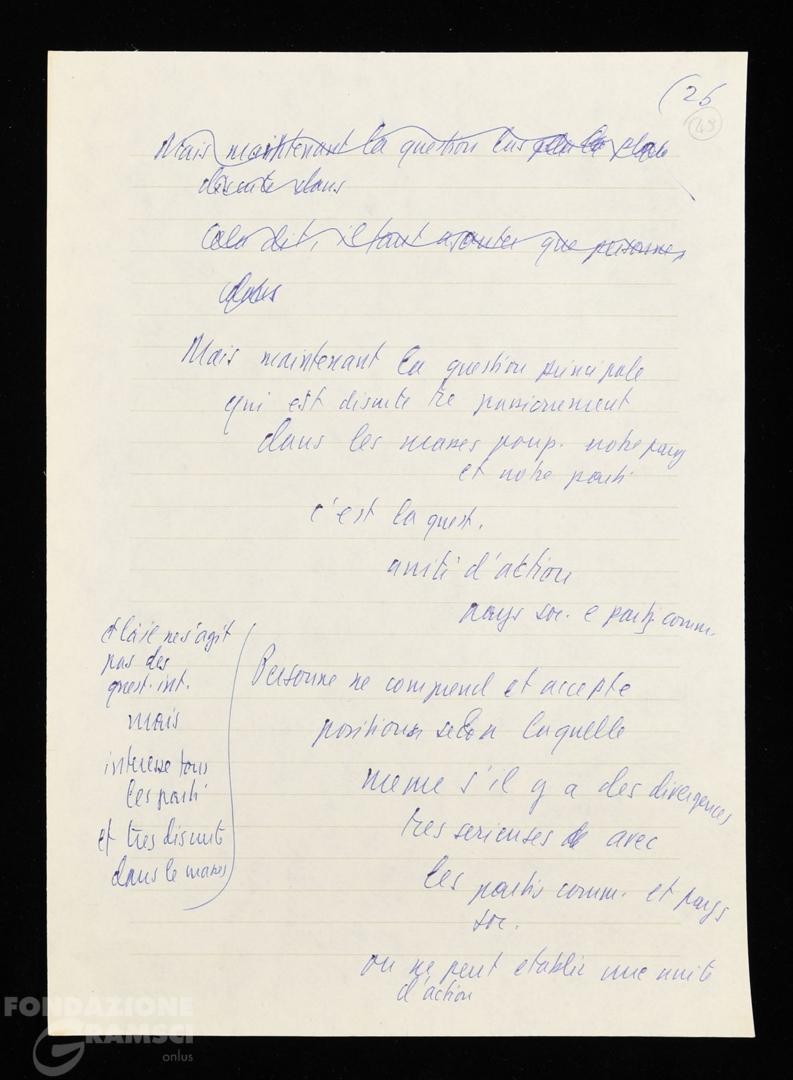 (26
49
Mais maintenant la question plus
discute dans
Cela dit, il faut ajouter que personne
Mais maintenant la question principale
qui est discute tre passionement
dans les masses pop. notre pays
et notre parti
c'est la quest.
unité d'action
pays soc. e partj comm.
et là il ne s'agit
pas des
quest. int.
mais
interesse tous
les parti
et tres discute
dans le masses
Personne ne comprend et accepte
positions selon laquelle
meme s'il y a des divergences
tres serieuses avec
les partis comm. et pays
soc.
on ne peut etablir une unite
d'action
FONDAZIONE
GRAMSCI
onlus